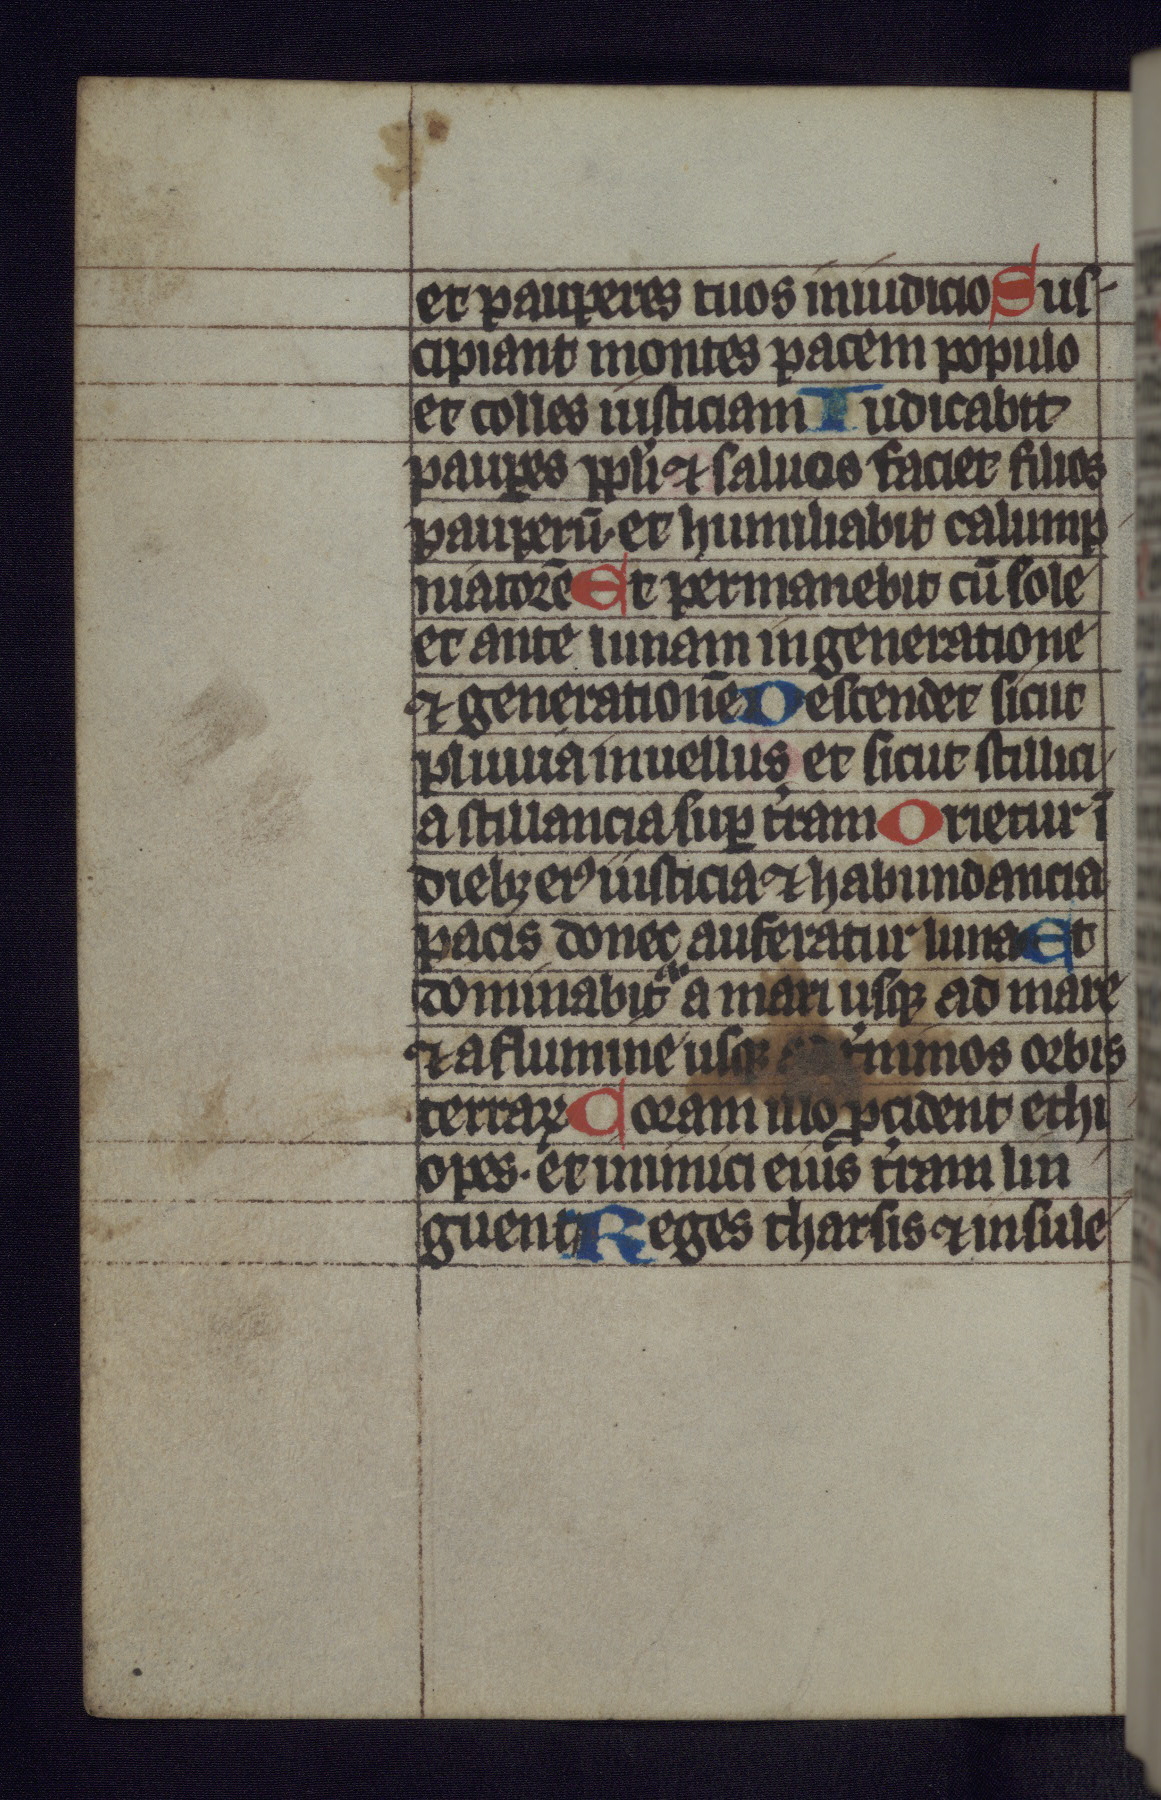 et pauperes tuos in iudicio Sus-
cipiant montes pacem populo
et colles iusticiam Iudicabit
paup̱es pp̱li ⁊ saluos faciet filios
pauperū. et humiliabit calump
niatorē Et permanebit cū sole
et ante lunam in generatione
⁊ generationē Descendet sicut
pluuia in uellus et sicut stillici
a stillancia sup̱ t̉ram Orietur ī
dieb; eiꝰ iusticia ⁊ habundancia
pacis donec auferatur luna Et
dominabit᷑ a mari usq; ad mare
⁊ a flumine usq; t̉minos orbis
terraꝝ Coram illo p̱cident ethi
opes. et inimici eius t̉ram lin
guent Reges tharsis ⁊ insule